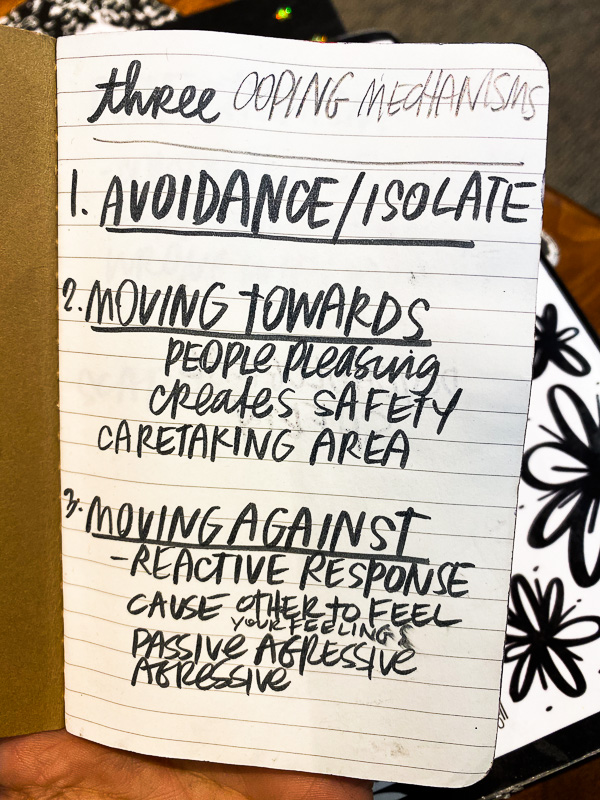 three COPING MECHANISMS
1. AVOIDANCE/ISOLATE
2. MOVING TOWARDS
PEOPLE Pleasing
Creates SAFETY
CARETAKING AREA
3. MOVING AGAINST
- REACTIVE RESPONSE
CAUSE OTHER to FEEL
YOUR FEELINGS
PASSIVE AGRESSIVE
AGRESSIVE